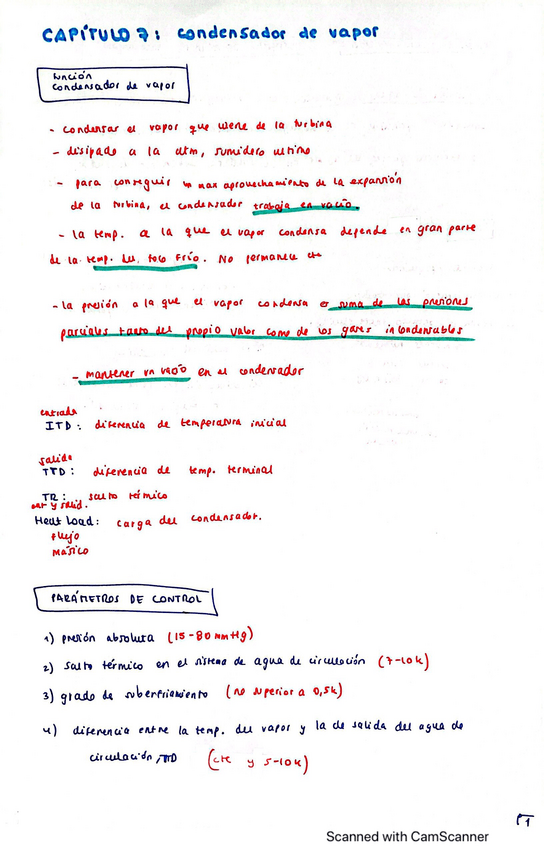 CAPÍTULO 7: condensador de vapor
función
condensador de vapor
- condensar el vapor que viene de la turbina
- disipado a la atm, sumidero ultimo
- para conseguir un max aprovechamiento de la expansión
de la turbina, el condensador trabaja en vacío.
- la temp. a la que el vapor condensa depende en gran parte
de la temp. del foco frío. No permanece cte
- la presión a la que el vapor condensa es suma de las presiones
parciales tanto del propio valor como de los gases incondensables
- mantener un vacío en el condensador
entrada
ITD: diferencia de temperatura inicial
salida
TTD: diferencia de temp. terminal
TR: salto térmico
ent y salid.
Heat Load: carga del condensador.
flujo
másico
PARÁMETROS DE CONTROL
1) presión absoluta (15-80 mmHg)
2) salto térmico en el sistema de agua de circulación (7-10k)
3) grado de subenfriamiento (no superior a 0,5k)
4) diferencia entre la temp. del vapor y la de salida del agua de
circulación, TTD (cte y 5-10k)
1
Scanned with CamScanner